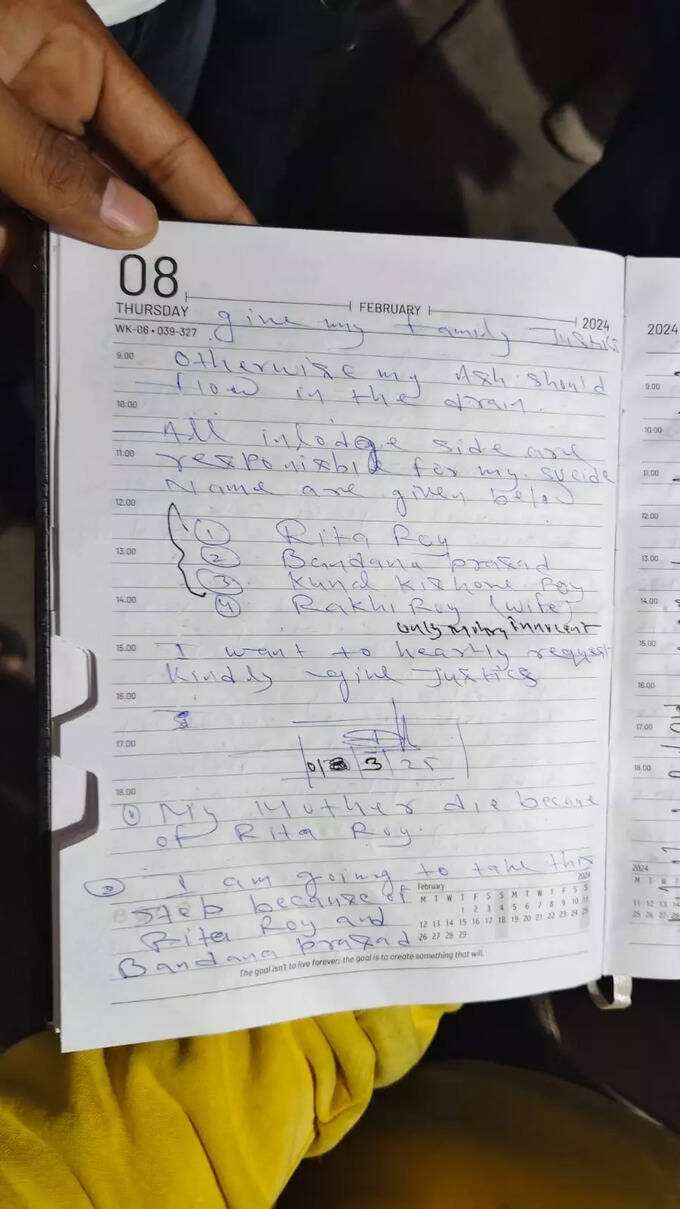 08
THURSDAY
FEBRUARY
2024
WK-06 • 039-327
give my family Justics
9.00 Otherwise my Ash should
flow in the drain.
10.00
All inlodge side are
11.00 responisble for my sucide
Name are given below
12.00
① Rita Roy
13.00 ② Bandana prasad
③ Kishone Roy
14.00 ④ Rakhi Roy (wife)
only innocent
15.00 I want to heartly request
Kindly give Justics
16.00
17.00
3 25
18.00
① My Mother die because
of Rita Roy.
② I am going to take this
Step because of
Rita Roy and
Bandana prasad
February 2024
M T W T F S S M T W T F S S
1 2 3 4 5 6 7 8 9 10 11
12 13 14 15 16 17 18 19 20 21 22 23 24 25
26 27 28 29
The goal isn't to live forever; the goal is to create something that will.
2024
9.00
10.00
11.00
12.00
13.00
14.00
15.00
16.00
17.00
18.00
2024
M T W T
11 12 13 14
25 26 27 28